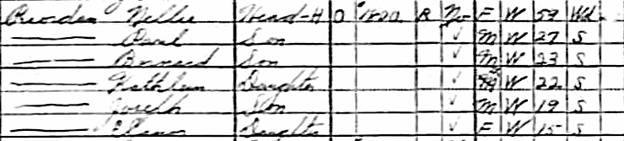 Nellie Head-H O 1800 R No F W 59 Wd
Paul Son ✓ M W 27 S
Bernard Son ✓ M W 23 S
Kathleen Daughter ✓ W 22 S
Joseph Son ✓ M W 19 S
Eleanor Daughter ✓ F W 15 S